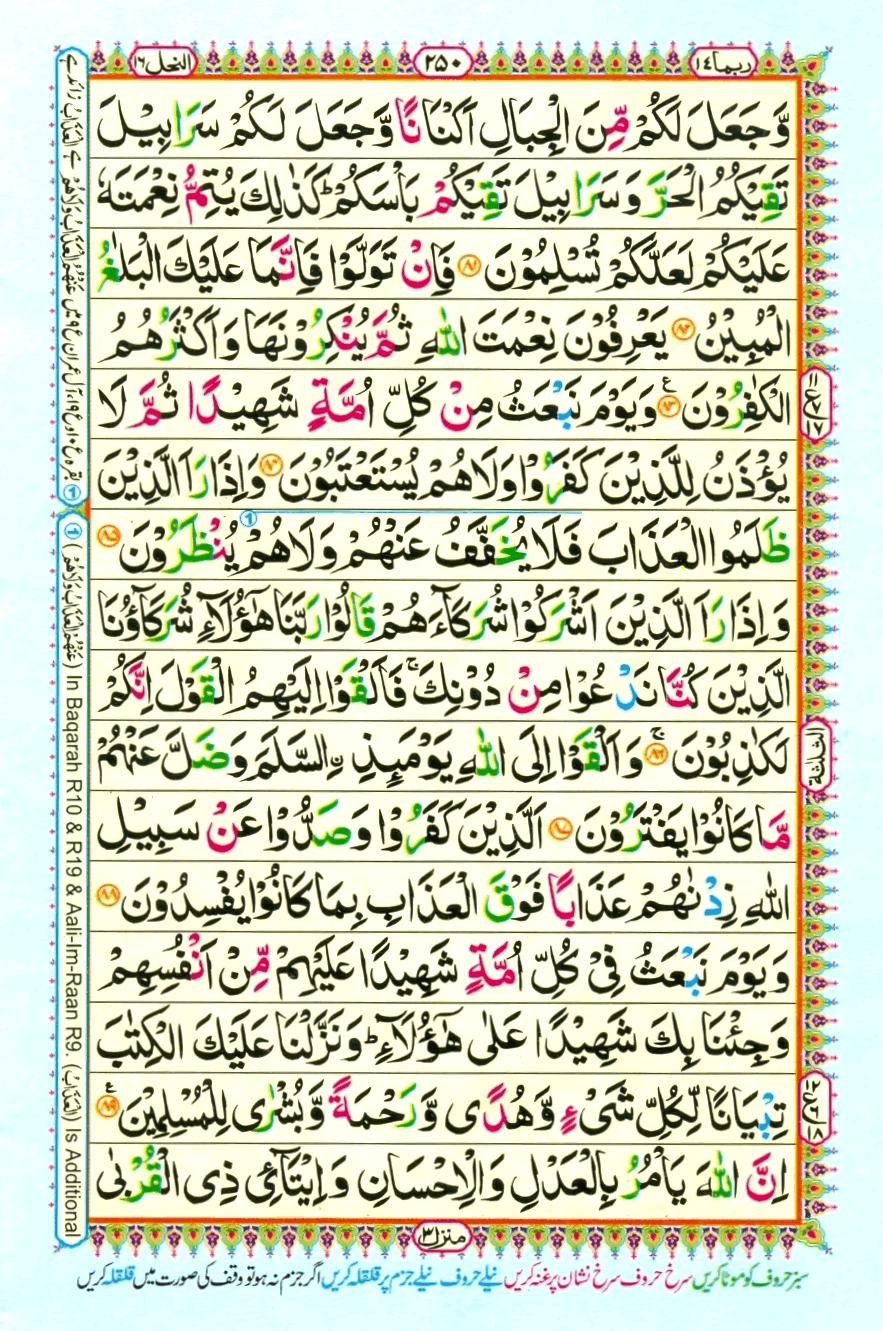 ربما ١٤
٢٥٠
النحل ١٦
وَّجَعَلَ لَكُمْ مِّنَ الْجِبَالِ اَكْنَانًا وَّجَعَلَ لَكُمْ سَرَابِيْلَ
تَقِيْكُمُ الْحَرَّ وَسَرَابِيْلَ تَقِيْكُمْ بَاْسَكُمْ ؕ كَذٰلِكَ يُتِمُّ نِعْمَتَهٗ
عَلَيْكُمْ لَعَلَّكُمْ تُسْلِمُوْنَ ﴿٨١﴾ فَاِنْ تَوَلَّوْا فَاِنَّمَا عَلَيْكَ الْبَلٰغُ
الْمُبِيْنُ ﴿٨٢﴾ يَعْرِفُوْنَ نِعْمَتَ اللّٰهِ ثُمَّ يُنْكِرُوْنَهَا وَاَكْثَرُهُمُ
الْكٰفِرُوْنَ ﴿٨٣﴾ ع وَيَوْمَ نَبْعَثُ مِنْ كُلِّ اُمَّةٍ شَهِيْدًا ثُمَّ لَا
يُؤْذَنُ لِلَّذِيْنَ كَفَرُوْا وَلَا هُمْ يُسْتَعْتَبُوْنَ ﴿٨٤﴾ وَاِذَا رَاَ الَّذِيْنَ
ظَلَمُوا الْعَذَابَ فَلَا يُخَفَّفُ عَنْهُمْ وَلَا هُمْ يُنْظَرُوْنَ ﴿٨٥﴾
وَاِذَا رَاَ الَّذِيْنَ اَشْرَكُوْا شُرَكَآءَهُمْ قَالُوْا رَبَّنَا هٰٓؤُلَآءِ شُرَكَآؤُنَا
الَّذِيْنَ كُنَّا نَدْعُوْا مِنْ دُوْنِكَ ۚ فَاَلْقَوْا اِلَيْهِمُ الْقَوْلَ اِنَّكُمْ
لَكٰذِبُوْنَ ﴿٨٦﴾ ۚ وَاَلْقَوْا اِلَى اللّٰهِ يَوْمَئِذِ ࣙالسَّلَمَ وَضَلَّ عَنْهُمْ
مَّا كَانُوْا يَفْتَرُوْنَ ﴿٨٧﴾ اَلَّذِيْنَ كَفَرُوْا وَصَدُّوْا عَنْ سَبِيْلِ
اللّٰهِ زِدْنٰهُمْ عَذَابًا فَوْقَ الْعَذَابِ بِمَا كَانُوْا يُفْسِدُوْنَ ﴿٨٨﴾
وَيَوْمَ نَبْعَثُ فِيْ كُلِّ اُمَّةٍ شَهِيْدًا عَلَيْهِمْ مِّنْ اَنْفُسِهِمْ
وَجِئْنَا بِكَ شَهِيْدًا عَلٰى هٰٓؤُلَآءِ ؕ وَنَزَّلْنَا عَلَيْكَ الْكِتٰبَ
تِبْيَانًا لِّكُلِّ شَيْءٍ وَّهُدًى وَّرَحْمَةً وَّبُشْرٰى لِلْمُسْلِمِيْنَ ﴿٨٩﴾ ع
اِنَّ اللّٰهَ يَاْمُرُ بِالْعَدْلِ وَالْاِحْسَانِ وَاِيْتَآئِ ذِي الْقُرْبٰى
منزل ٣
سبز حروف کو موٹا کریں سرخ حروف سرخ نشان پر غنہ کریں نیلے حروف نیلے جزم پر قلقلہ کریں اگر جزم نہ ہو تو وقف کی صورت میں قلقلہ کریں
الثلثة
① (عَنْهُمُ الْعَذَابُ وَلَا هُمْ) In Baqarah R10 & R19 & Aali-Im-Raan R9. (الْعَذَابُ) Is Additional